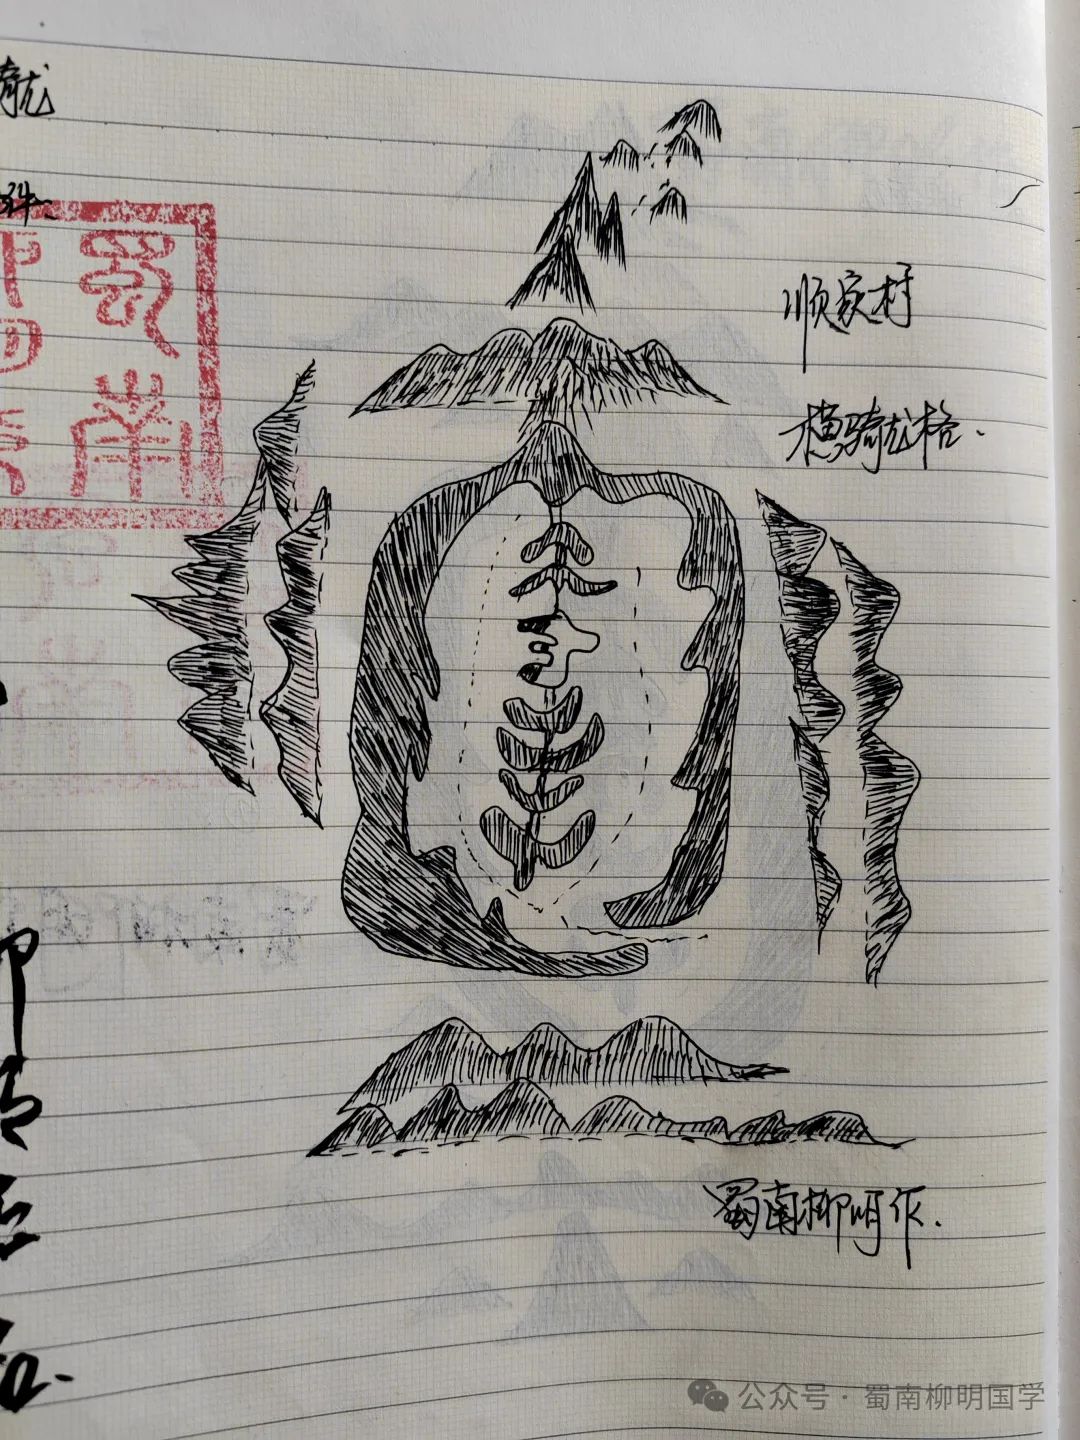 龙
顺家村
横骑龙格.
蜀南
蜀南柳明作.
公众号 · 蜀南柳明国学